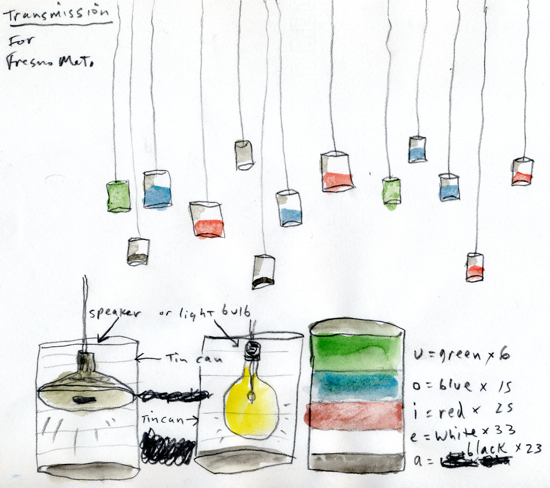 Transmission
For
Fresno Met.
speaker or light bulb
Tin can
Tin can
u = green x 6
o = blue x 15
i = red x 25
e = white x 33
a = black x 23